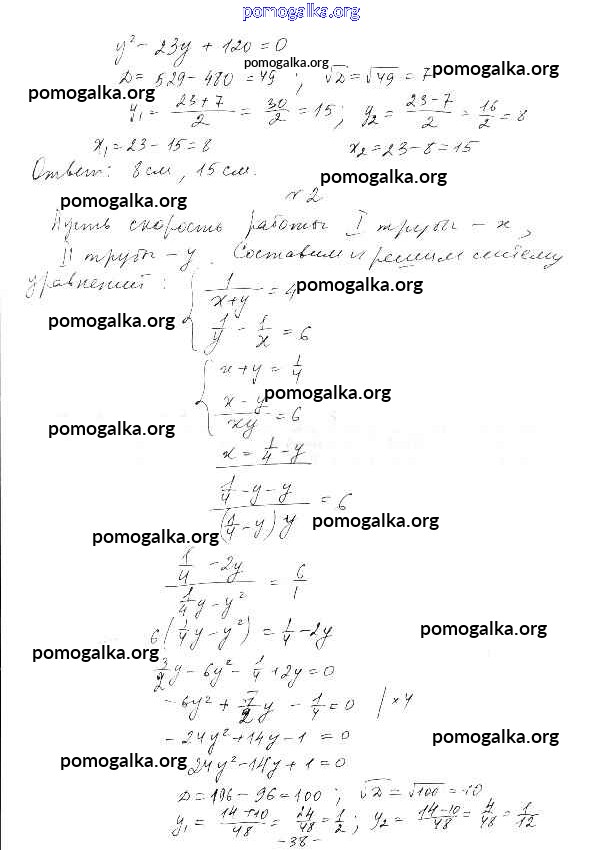 pomogalka.org
y² - 23y + 120 = 0
pomogalka.org
D = 529 - 480 = 49 ; √D = √49 = 7
pomogalka.org
pomogalka.org
y₁ = (23+7)/2 = 30/2 = 15 ; y₂ = (23-7)/2 = 16/2 = 8
x₁ = 23 - 15 = 8 x₂ = 23 - 8 = 15
Ответ: 8 см, 15 см.
pomogalka.org
№2
pomogalka.org
Пусть скорость работы I трубы - x,
II трубы - y. Составим и решим систему
уравнений: { 1/(x+y) = 4
pomogalka.org
pomogalka.org
1/y - 1/x = 6
{ x + y = 1/4
pomogalka.org
(x - y)/(xy) = 6
pomogalka.org
x = 1/4 - y
(1/4 - y - y)/((1/4 - y) y) = 6
pomogalka.org
pomogalka.org
(1/4 - 2y)/(1/4 y - y²) = 6/1
6(1/4 y - y²) = 1/4 - 2y
pomogalka.org
pomogalka.org
3/2 y - 6y² - 1/4 + 2y = 0
- 6y² + 7/2 y - 1/4 = 0 | × 4
- 24y² + 14y - 1 = 0
pomogalka.org
pomogalka.org
24y² - 14y + 1 = 0
D = 196 - 96 = 100 ; √D = √100 = 10
y₁ = (14+10)/48 = 24/48 = 1/2 ; y₂ = (14-10)/48 = 4/48 = 1/12
- 38 -